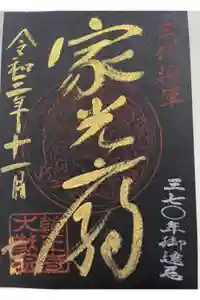 三代将軍
三七〇年御遠忌
家光廟
令和二年十一月
大猷院